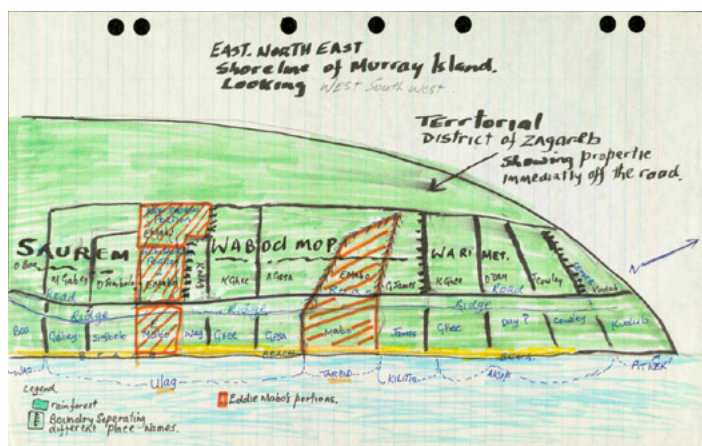 EAST. NORTH EAST
Shoreline of Murray Island.
Looking West South West.
Territorial
District of Zagareb
Showing propertie
immediatly off the road.
E Mabo
SAUREM WABOd MOP WARI MET.
O Boa M Gabey D Simbolo E Mabo K Ghee A Gesa E Mabo G. James K Ghee D Day J Cowley Kudub
Road Road Road
Ridge Ridge Ridge
Boa Gabey Simbolo Mabo Wag Ghee Gesa Mabo James Ghee Day? Cowley Kudub
N
BEACH
Ulag TARBID KILITIA PITKER
Legend
rainforest
Boundry Seperating
different place names.
Eddie Mabo's portions.